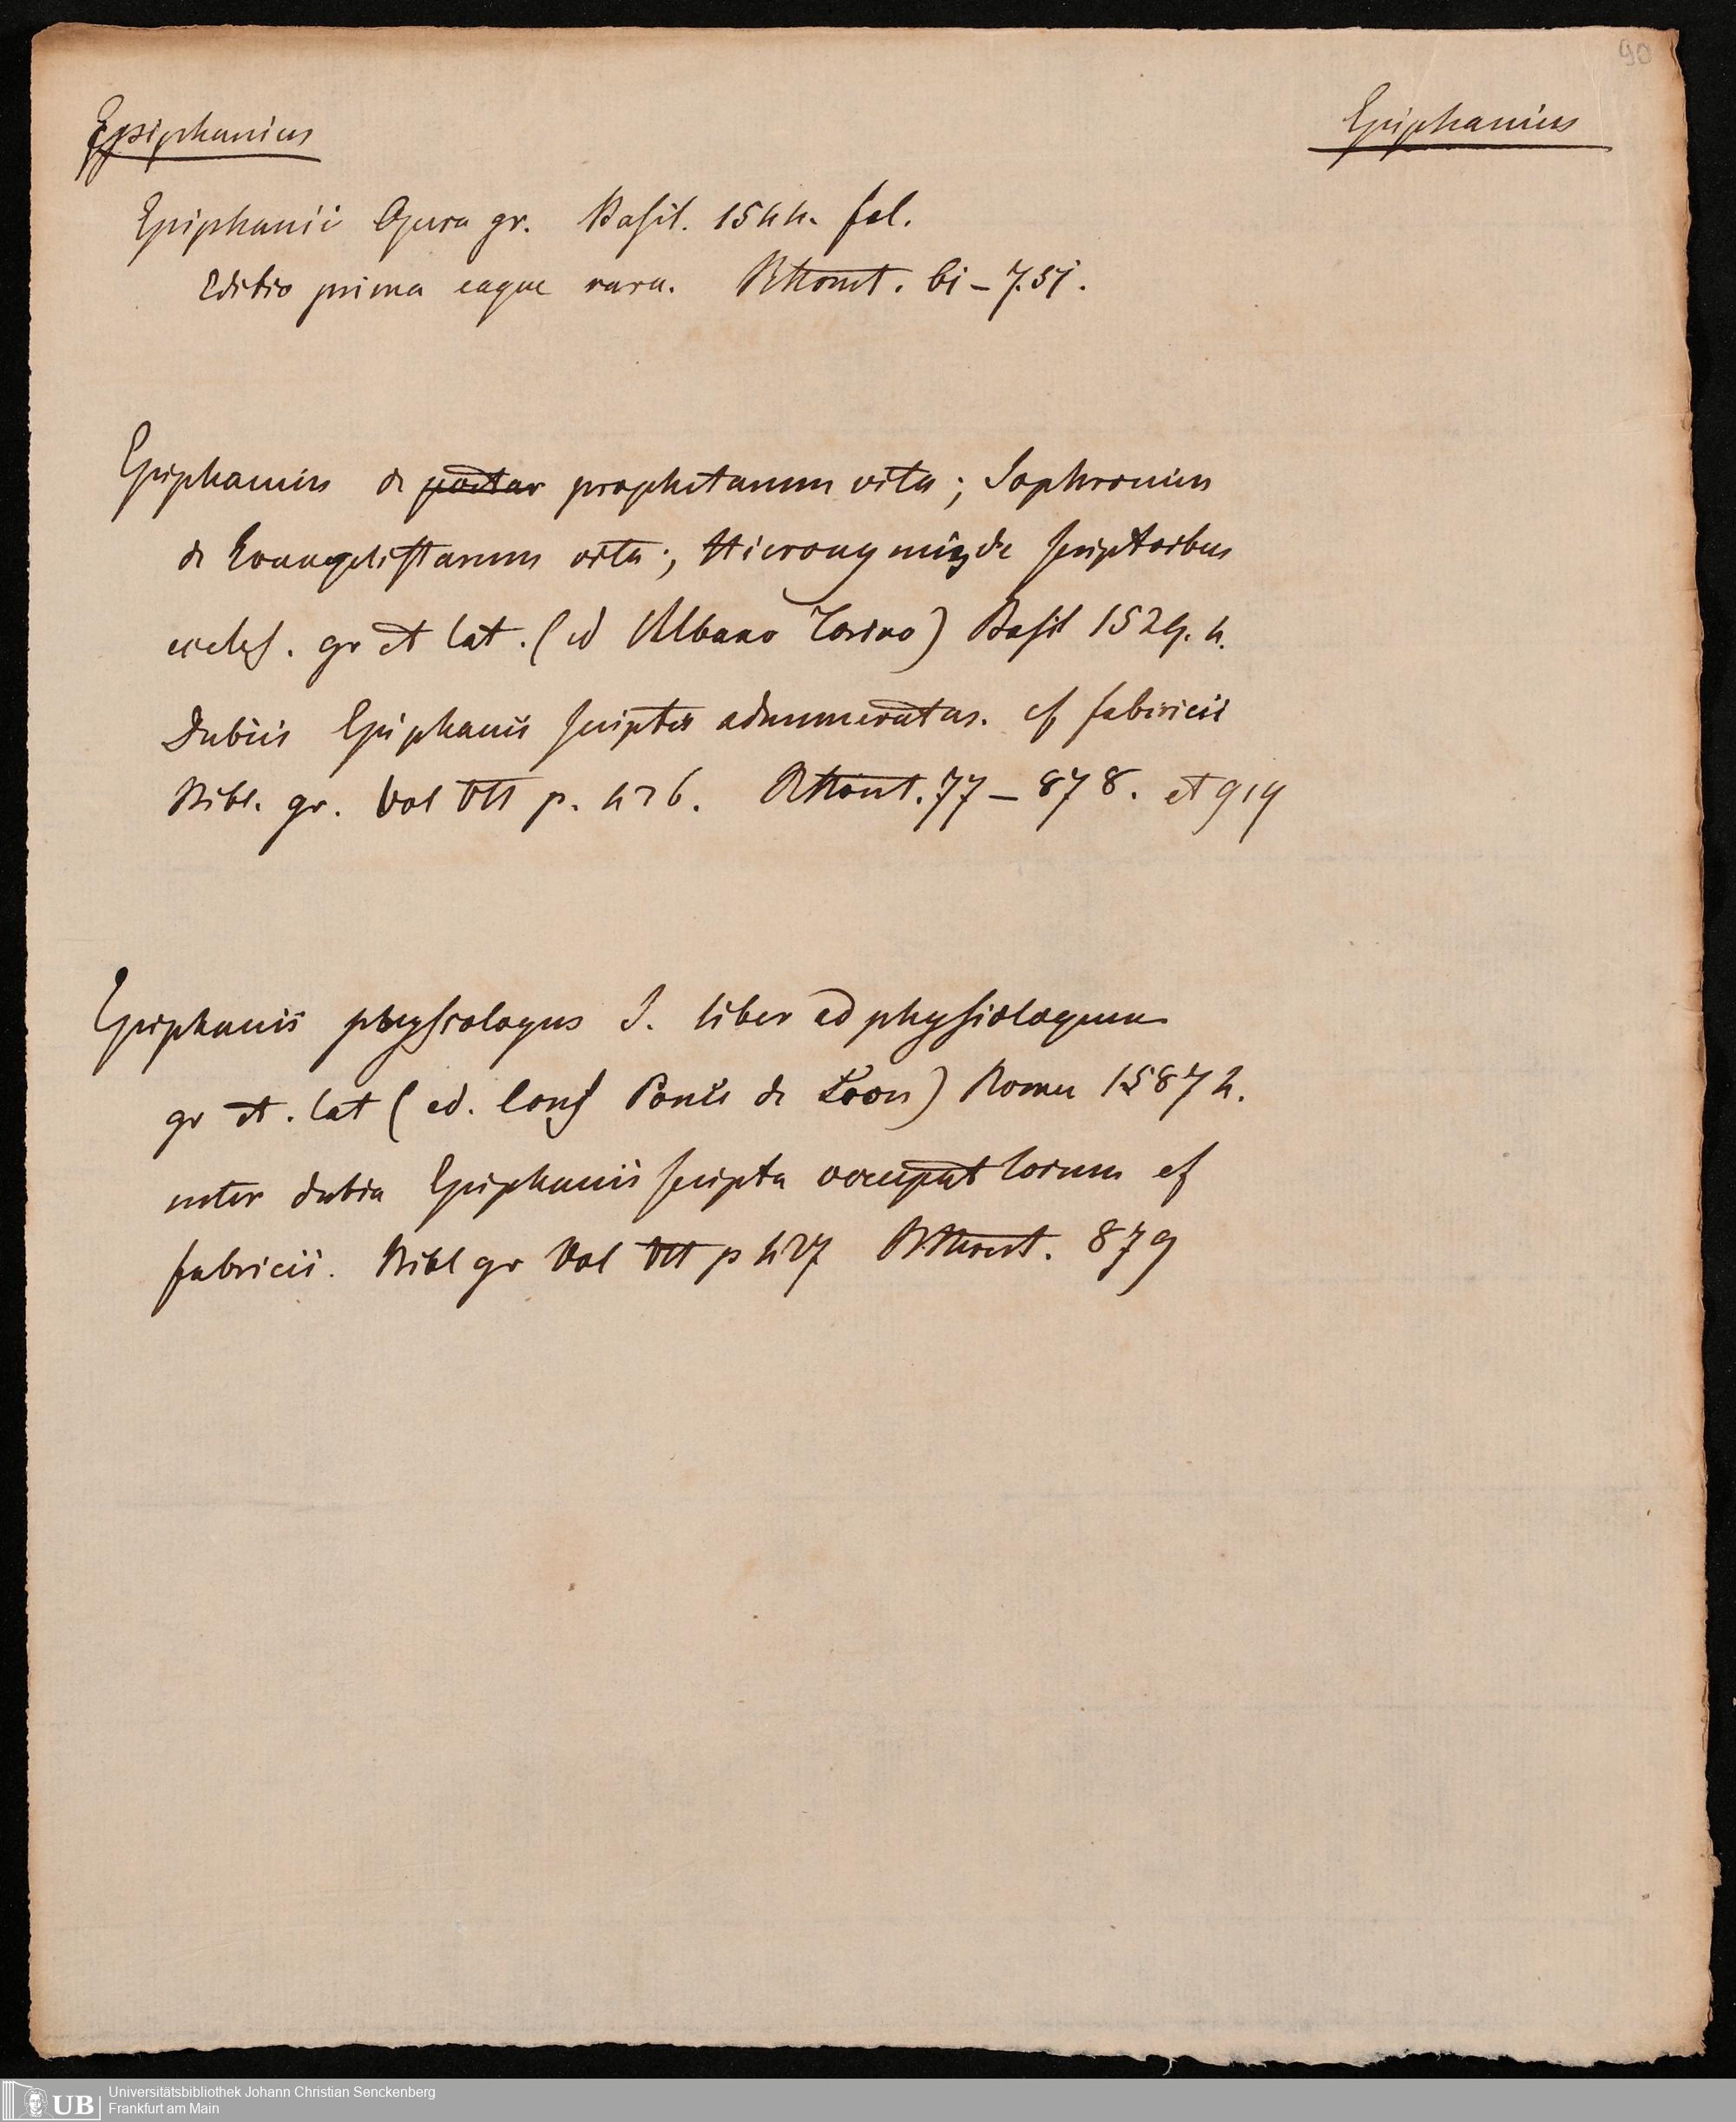 90
Epiphanius
Epiphanius
Epiphanii Opera gr. Basil. 1544. fol.
Editio prima eaque rara.
Epiphanius de prophetarum vita; Sophronius
de Evangelistarum vita; Hieronymus de scriptoribus
eccles. gr et lat. (ed Albano Torino) Basil 1529. 4.
Dubiis Epiphanii scriptis adnumeratus. cf Fabricii
Bibl. gr. Vol VII p. 426. 77 – 878. et 919
Epiphanii physiologus S. liber ad physiologum
gr et. lat (ed. Cons Ponce de Leon) Roma 1587 4.
inter dubia Epiphanii scripta occupat locum cf
Fabricii. Bibl gr Vol VII p 427 879
UB Universitätsbibliothek Johann Christian Senckenberg
Frankfurt am Main